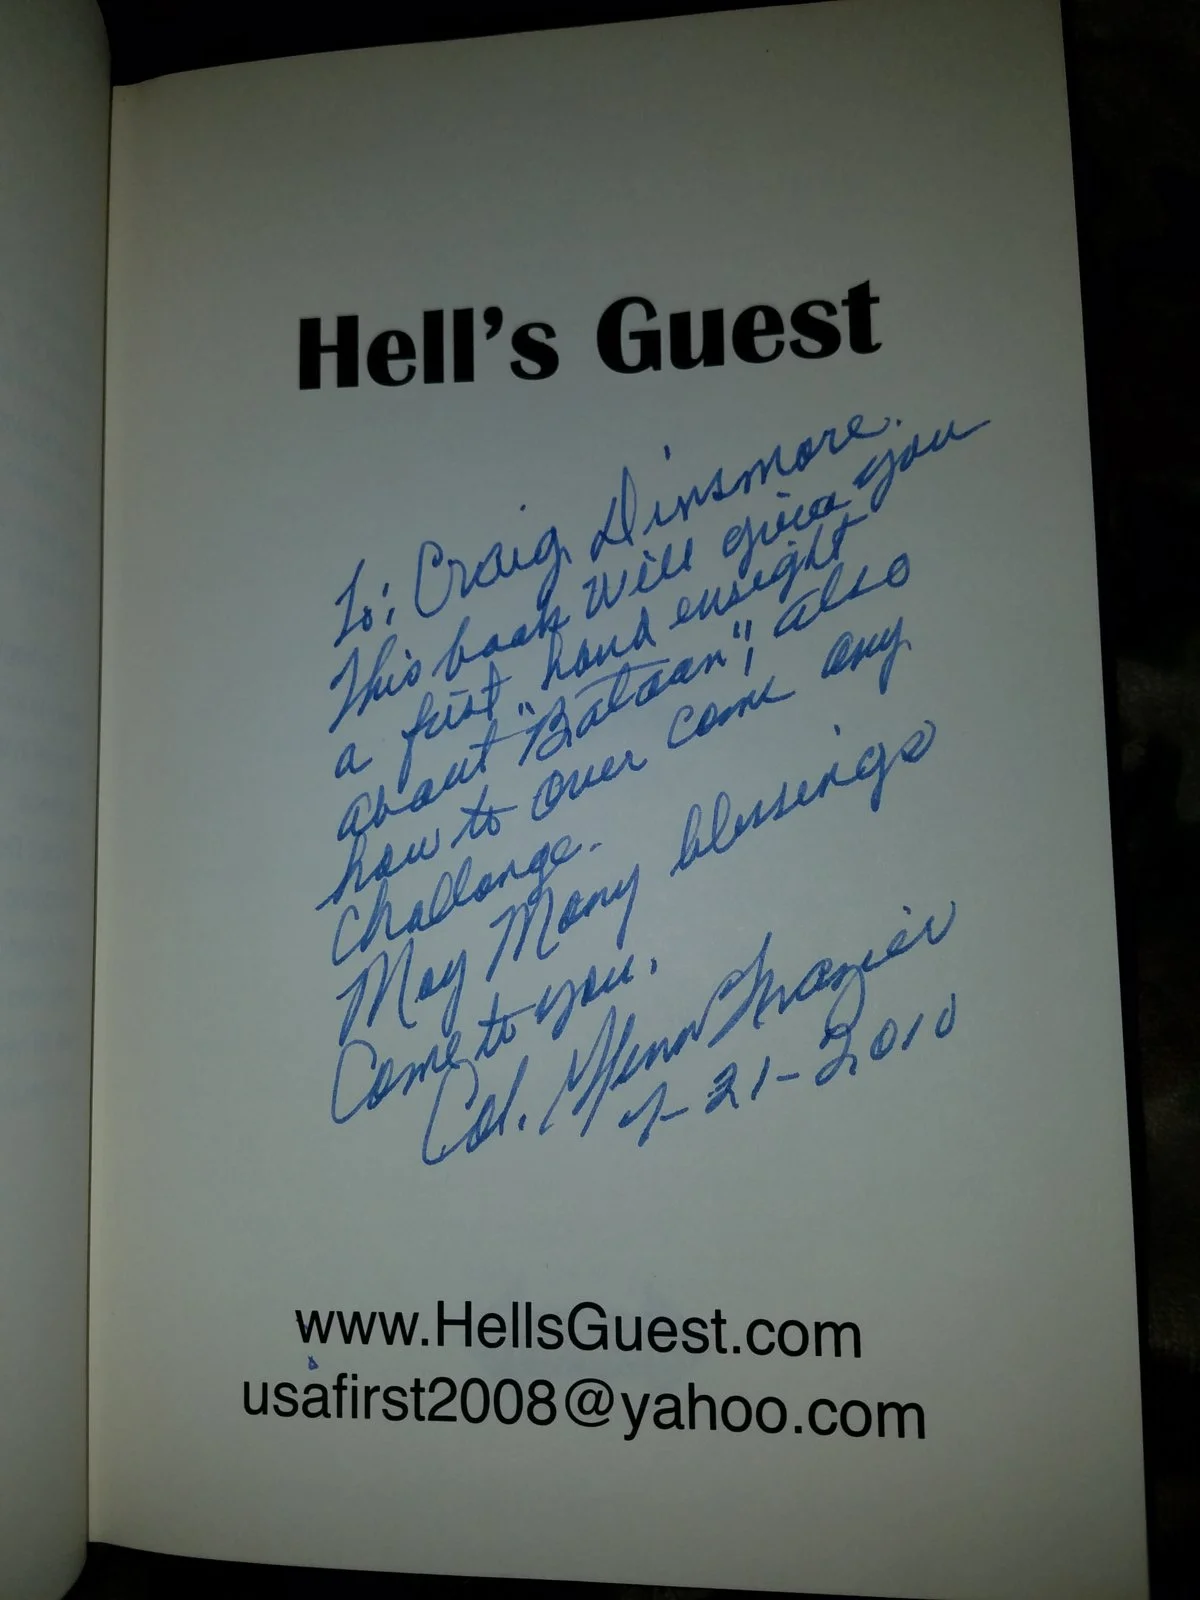 Hell's Guest
To: Craig Dinsmore.
This book will given you
a first hand ensight
about "Bataan", also
how to over come any
challange.
May Many blessings
Come to you.
Col. Glenn Frazier
7-21-2010
www.HellsGuest.com
usafirst2008@yahoo.com